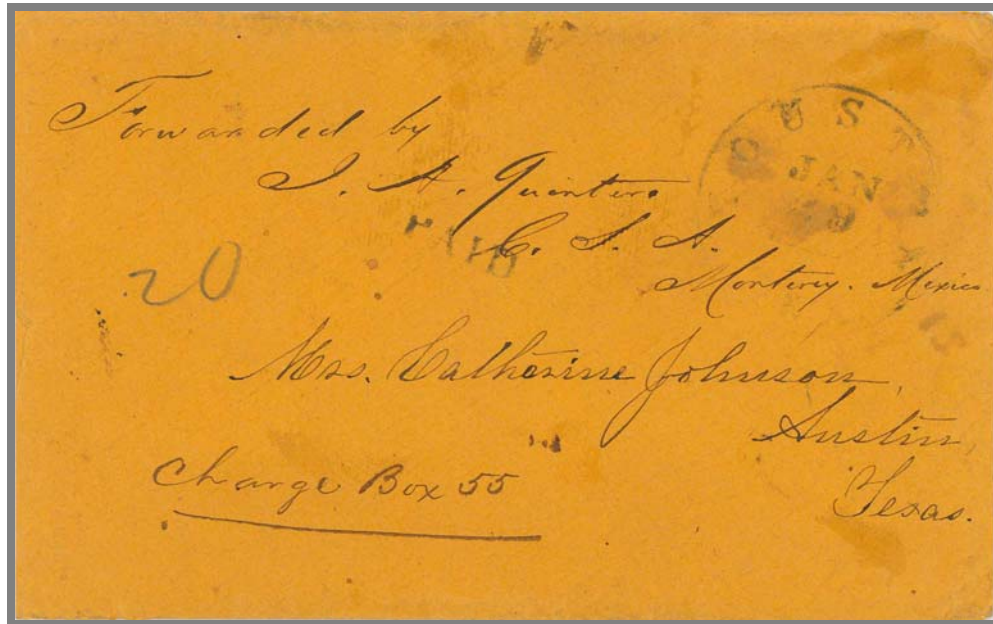 Forwarded by
J. A. Quintero
C. S. A.
Monterey. Mexico
PAID
20
OUST
JAN
Mrs. Catherine Johnson,
Austin,
Texas.
Charge Box 55